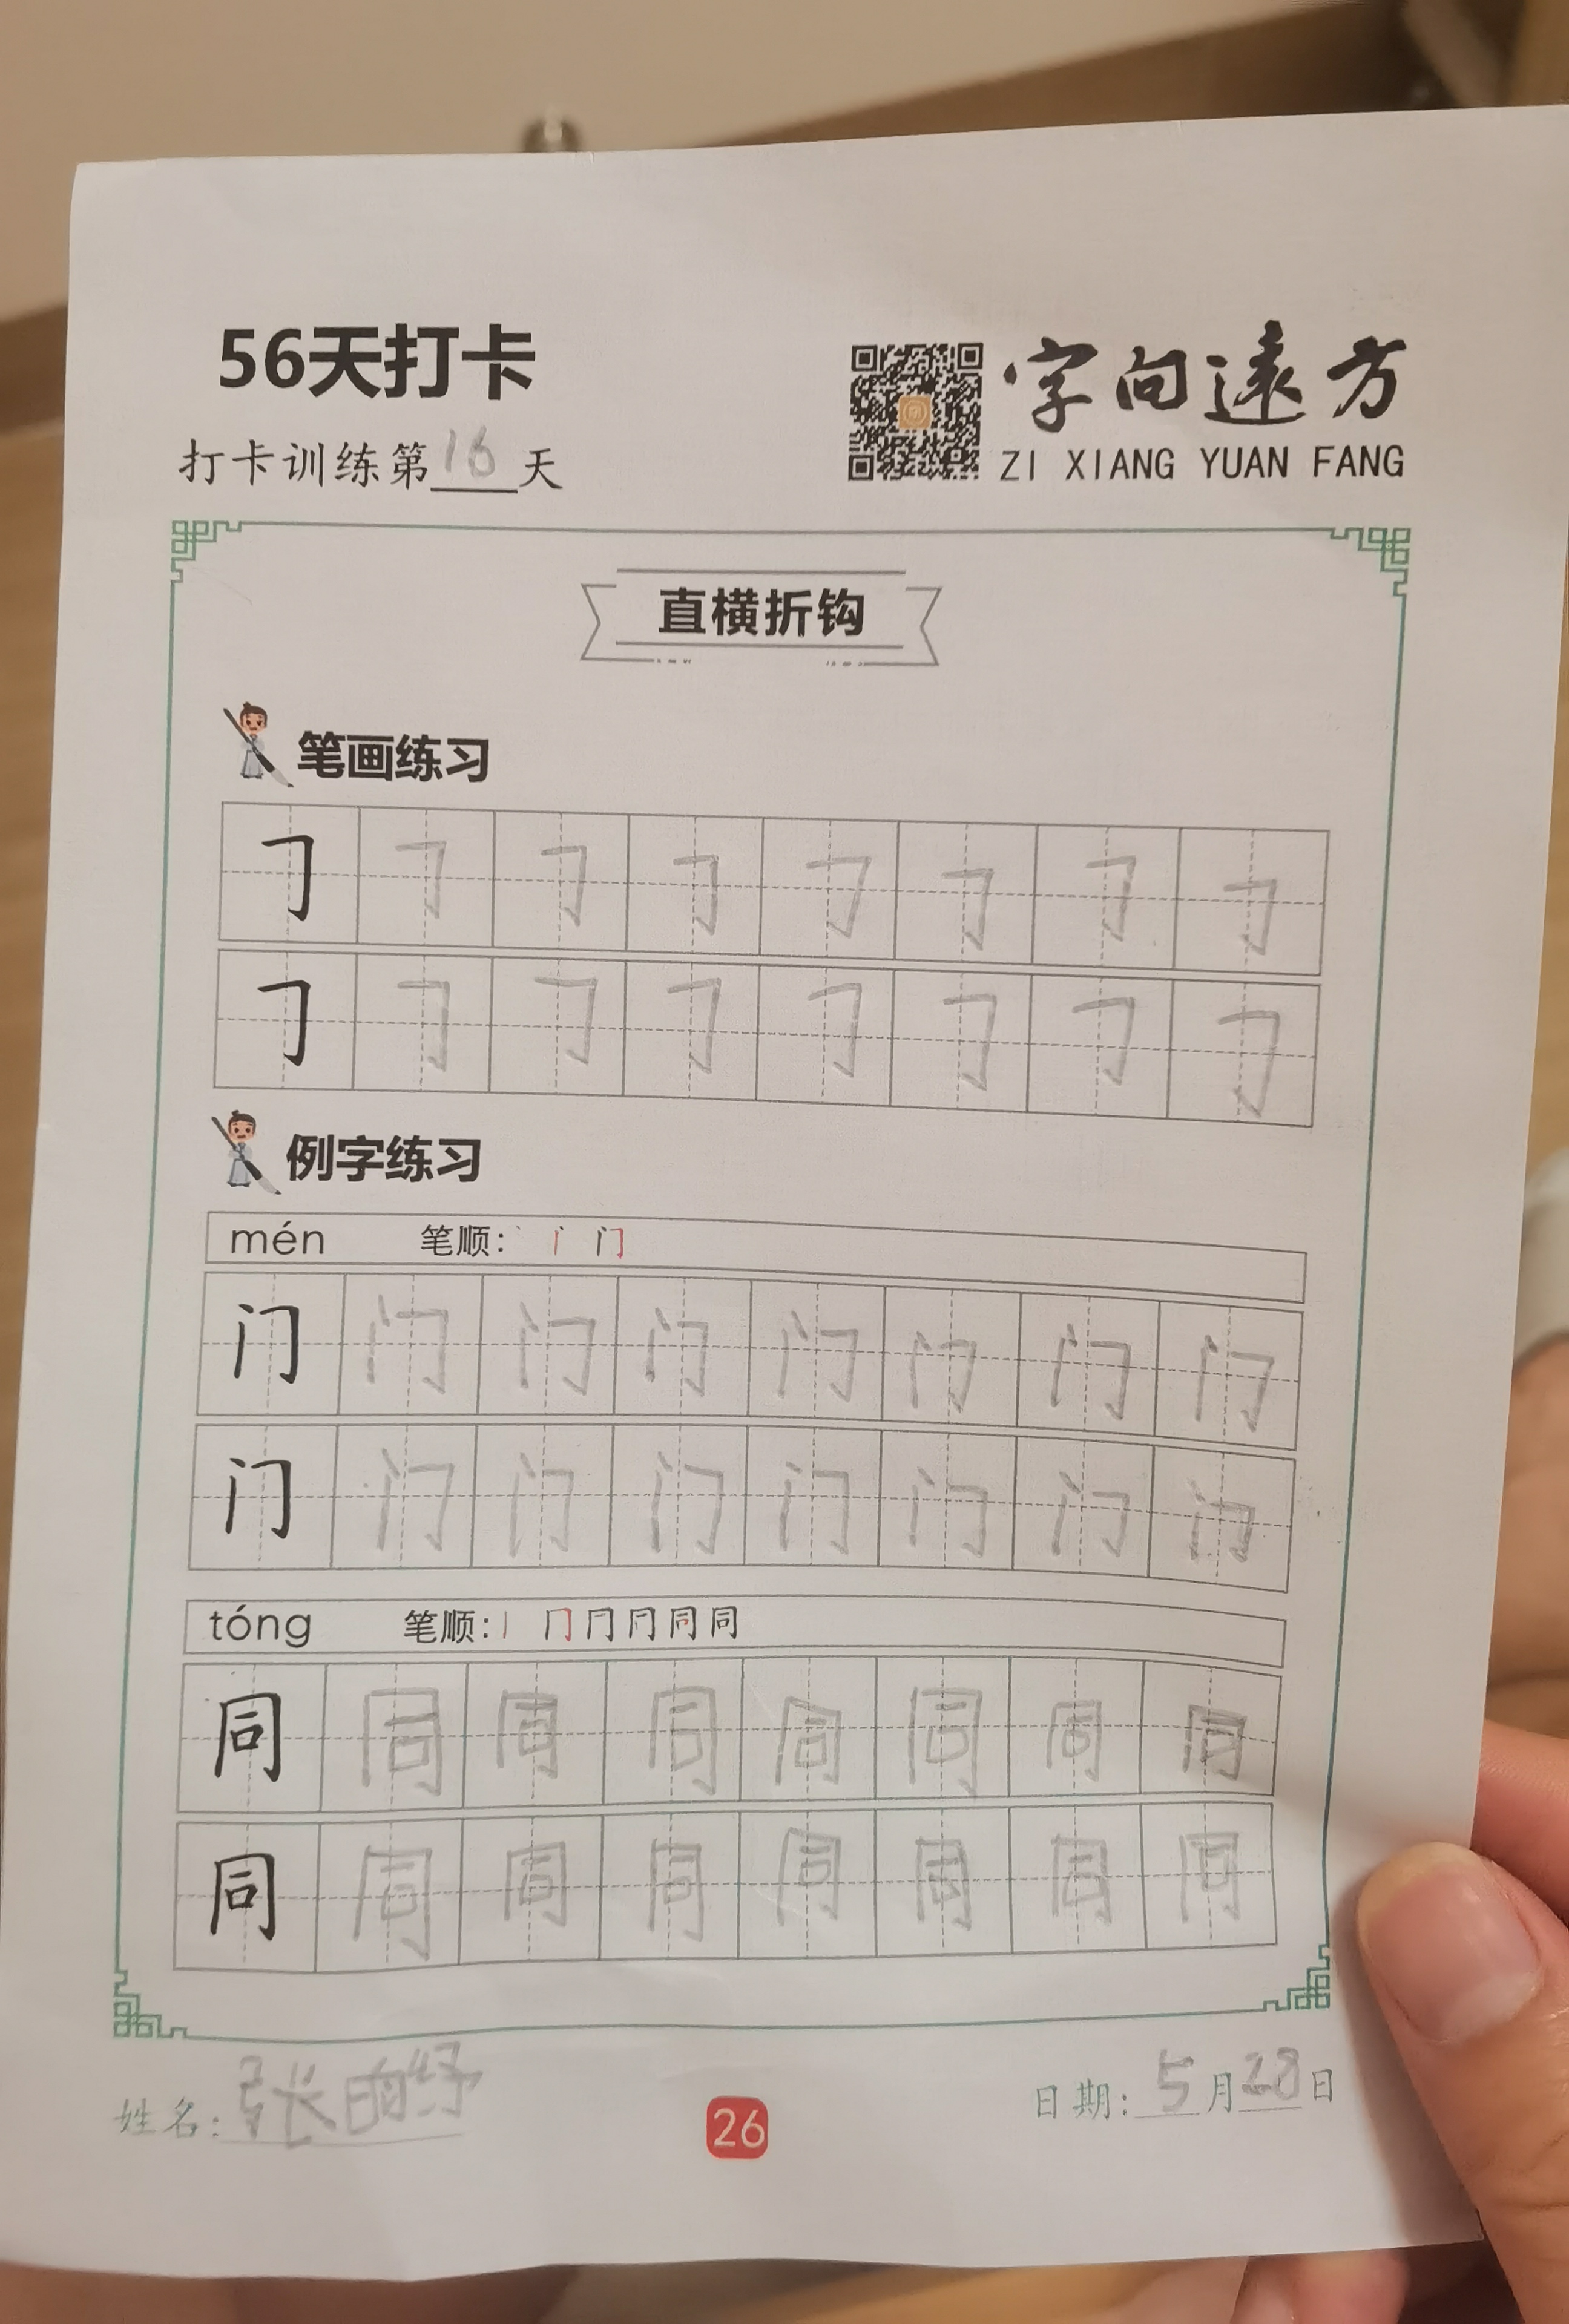 56天打卡
字向遠方
打卡训练第16天
ZI XIANG YUAN FANG
直横折钩
笔画练习
𠃌 𠃌 𠃌 𠃌 𠃌 𠃌 𠃌 𠃌
𠃌 𠃌 𠃌 𠃌 𠃌 𠃌 𠃌 𠃌
例字练习
mén 笔顺: 丶 门
门 门 门 门 门 门 门 门
门 门 门 门 门 门 门 门
tóng 笔顺: 丨 冂 同
同 同 同 同 同 同 同 同
同 同 同 同 同 同 同 同
姓名: 张
26
日期: 5月28日